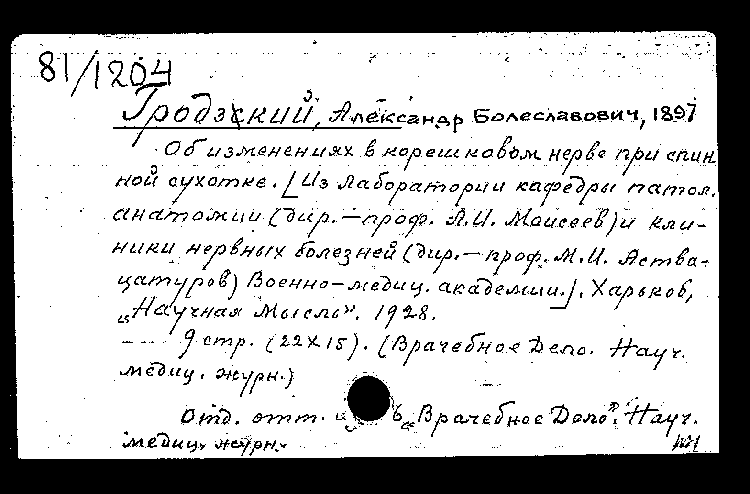 81/1204
Гродзский, Александр Болеславович, 1897
Об изменениях в корешковом нерве при спин
ной сухотке. [Из лаборатории кафедры патол.
анатомии (дир. — проф. А.И. Моисеев) и кли-
ники нервных болезней (дир. — проф. М.И. Аства-
цатуров) Военно-медиц. академии.]. Харьков,
„Научная Мысль". 1928.
9 стр. (22x15). (Врачебное Дело. Науч.
медиц. журн.)
Отд. отт. „Врачебное Дело". Науч.
медиц. журн.